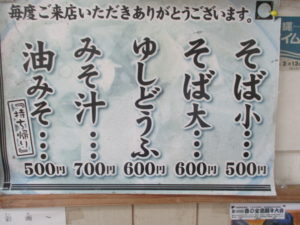 毎度ご来店いただきありがとうございます。
そば小…
500円
そば大…
600円
ゆしどうふ
600円
みそ汁…
700円
油みそ…
『持ち帰り』
500円